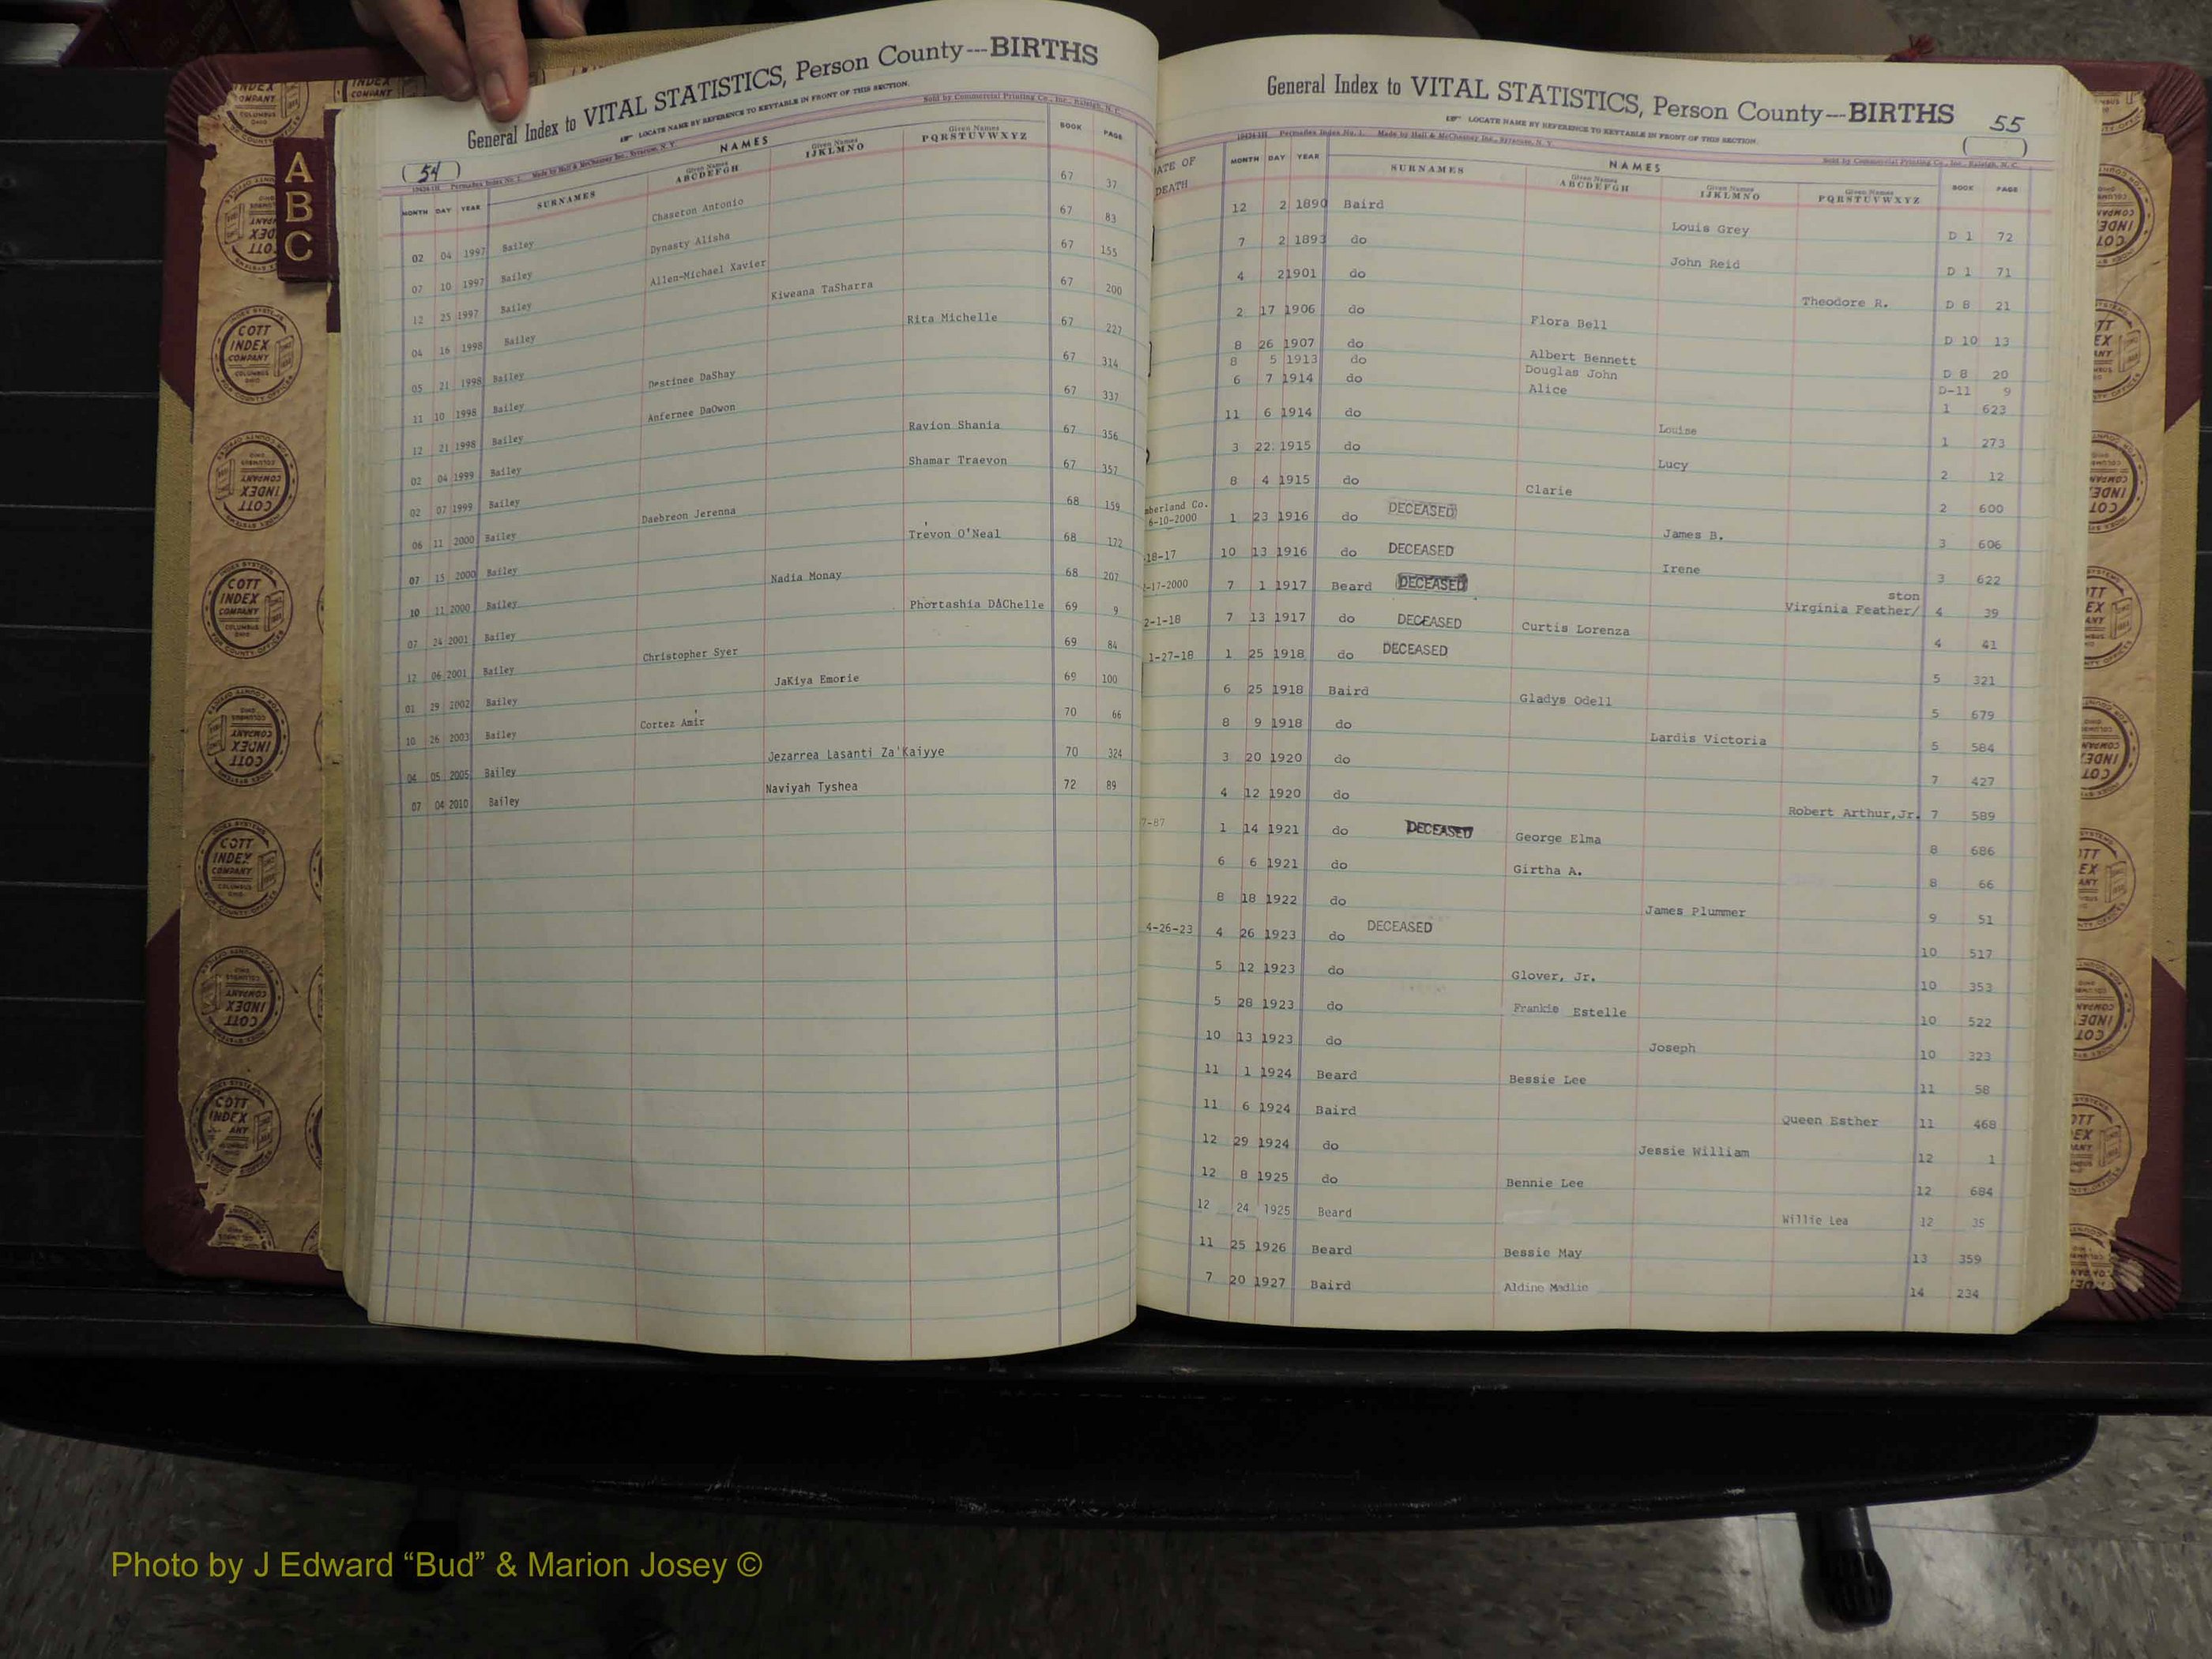 General Index to VITAL STATISTICS, Person County---BIRTHS
LOCATE NAME BY REFERENCE TO KEYTABLE IN FRONT OF THIS SECTION.
Sold by Commercial Printing Co., Inc., Raleigh, N. C.
(54)
A
B
C
NAMES
MONTH DAY YEAR SURNAMES Given Names ABCDEFGH Given Names IJKLMNO Given Names PQRSTUVWXYZ BOOK PAGE
02 04 1997 Bailey Chaseton Antonio 67 37
07 10 1997 Bailey Dynasty Alisha 67 83
12 25 1997 Bailey Allen-Michael Xavier 67 155
04 16 1998 Bailey Kiweana TaSharra 67 200
05 21 1998 Bailey Rita Michelle 67 227
11 10 1998 Bailey Destinee DaShay 67 314
12 21 1998 Bailey Anfernee DaOwon 67 337
02 04 1999 Bailey Ravion Shania 67 356
02 07 1999 Bailey Shamar Traevon 67 357
06 11 2000 Bailey Daebreon Jerenna 68 159
07 15 2000 Bailey Trevon O'Neal 68 172
10 11 2000 Bailey Nadia Monay 68 207
07 24 2001 Bailey Phortashia DAChelle 69 9
12 06 2001 Bailey Christopher Syer 69 84
01 29 1002 Bailey JaKiya Emorie 69 100
10 26 2003 Bailey Cortez Amir 70 66
04 05 2005 Bailey Jezarrea Lasanti Za'Kaiyye 70 324
07 04 2010 Bailey Naviyah Tyshea 72 89
General Index to VITAL STATISTICS, Person County---BIRTHS
LOCATE NAME BY REFERENCE TO KEYTABLE IN FRONT OF THIS SECTION.
55
Made by Hall & McChesney Inc., Syracuse, N. Y.
Sold by Commercial Printing Co., Inc., Raleigh, N. C.
NAMES
DATE OF DEATH MONTH DAY YEAR SURNAMES Given Names ABCDEFGH Given Names IJKLMNO Given Names PQRSTUVWXYZ BOOK PAGE
12 2 1890 Baird Louis Grey D 1 72
7 2 1893 do John Reid D 1 71
4 2 1901 do Theodore R. D 8 21
2 17 1906 do Flora Bell D 10 13
8 26 1907 do Albert Bennett D 8 20
8 5 1913 do Douglas John D-11 9
6 7 1914 do Alice 1 623
11 6 1914 do Louise 1 273
3 22 1915 do Lucy 2 12
8 4 1915 do Clarie 2 600
mberland Co. 6-10-2000 1 23 1916 do DECEASED James B. 3 606
18-17 10 13 1916 do DECEASED Irene 3 622
-17-2000 7 1 1917 Beard DECEASED Virginia Feather/ston 4 39
2-1-18 7 13 1917 do DECEASED Curtis Lorenza 4 41
1-27-18 1 25 1918 do DECEASED 5 321
6 25 1918 Baird Gladys Odell 5 679
8 9 1918 do Lardis Victoria 5 584
3 20 1920 do 7 427
4 12 1920 do Robert Arthur,Jr. 7 589
7-87 1 14 1921 do DECEASED George Elma 8 686
6 6 1921 do Girtha A. 8 66
8 18 1922 do James Plummer 9 51
4-26-23 4 26 1923 do DECEASED 10 517
5 12 1923 do Glover, Jr. 10 353
5 28 1923 do Frankie Estelle 10 522
10 13 1923 do Joseph 10 323
11 1 1924 Beard Bessie Lee 11 58
11 6 1924 Baird Queen Esther 11 468
12 29 1924 do Jessie William 12 1
12 8 1925 do Bennie Lee 12 684
12 24 1925 Beard Willie Lea 12 35
11 25 1926 Beard Bessie May 13 359
7 20 1927 Baird Aldine Madlie 14 234
COTT INDEX COMPANY COLUMBUS OHIO
Photo by J Edward “Bud” & Marion Josey ©